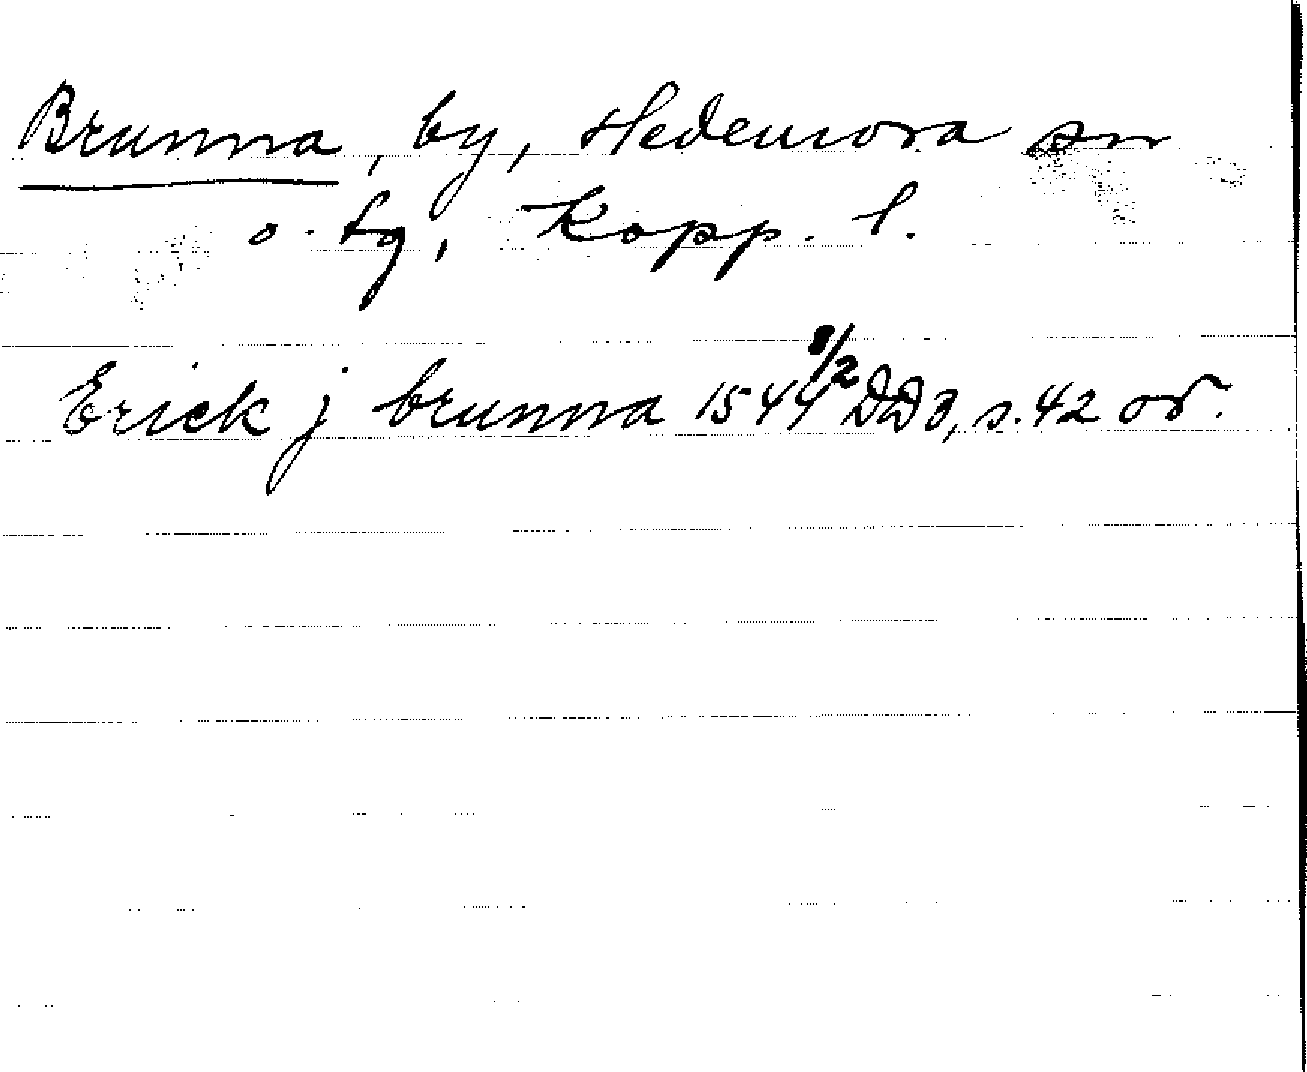 Brunna, by, Hedemora sn
o. tg, Kopp. l.
Erick j brunna 1544 8/2 DD3, s. 42 or.